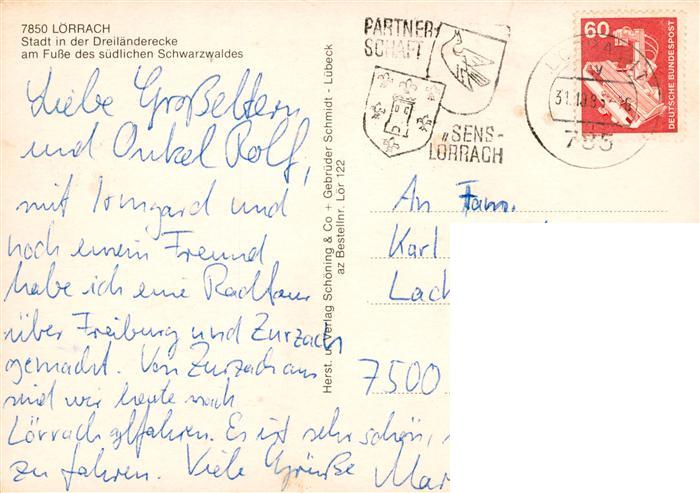 7850 LÖRRACH
Stadt in der Dreiländerecke
am Fuße des südlichen Schwarzwaldes
Liebe Großeltern
und Onkel Rolf,
mit Irmgard und
noch einem Freund
habe ich eine Radtour
über Freiburg und Zurzach
gemacht. Von Zurzach aus
sind wir heute nach
Lörrach gefahren. Es ist sehr schön,
zu fahren. Viele Grüße
Mar
Herst. u. Verlag Schöning & Co + Gebrüder Schmidt - Lübeck
az Bestellnr. Lör 122
PARTNER-
SCHAFT
„SENS-
LÖRRACH
785
60
DEUTSCHE BUNDESPOST
An Fam.
Karl
Lach
7500